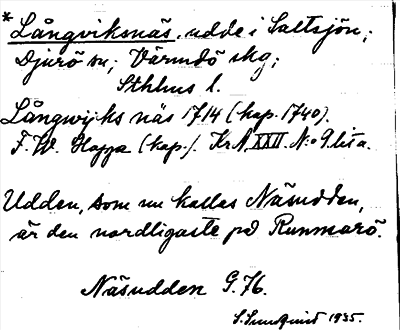 * Långviksnäs, udde i Saltsjön;
Djurö sn; Värmdö skg;
Sthlms l.
Långwijks näs 1714 (kop. 1740).
F. W. Hoppa (kop.). Kr A XXII. N:o 9 lit a.
Udden, som nu kallas Näsudden,
är den nordligaste på Runmarö.
Näsudden G. 76.
S. Sundquist 1935.